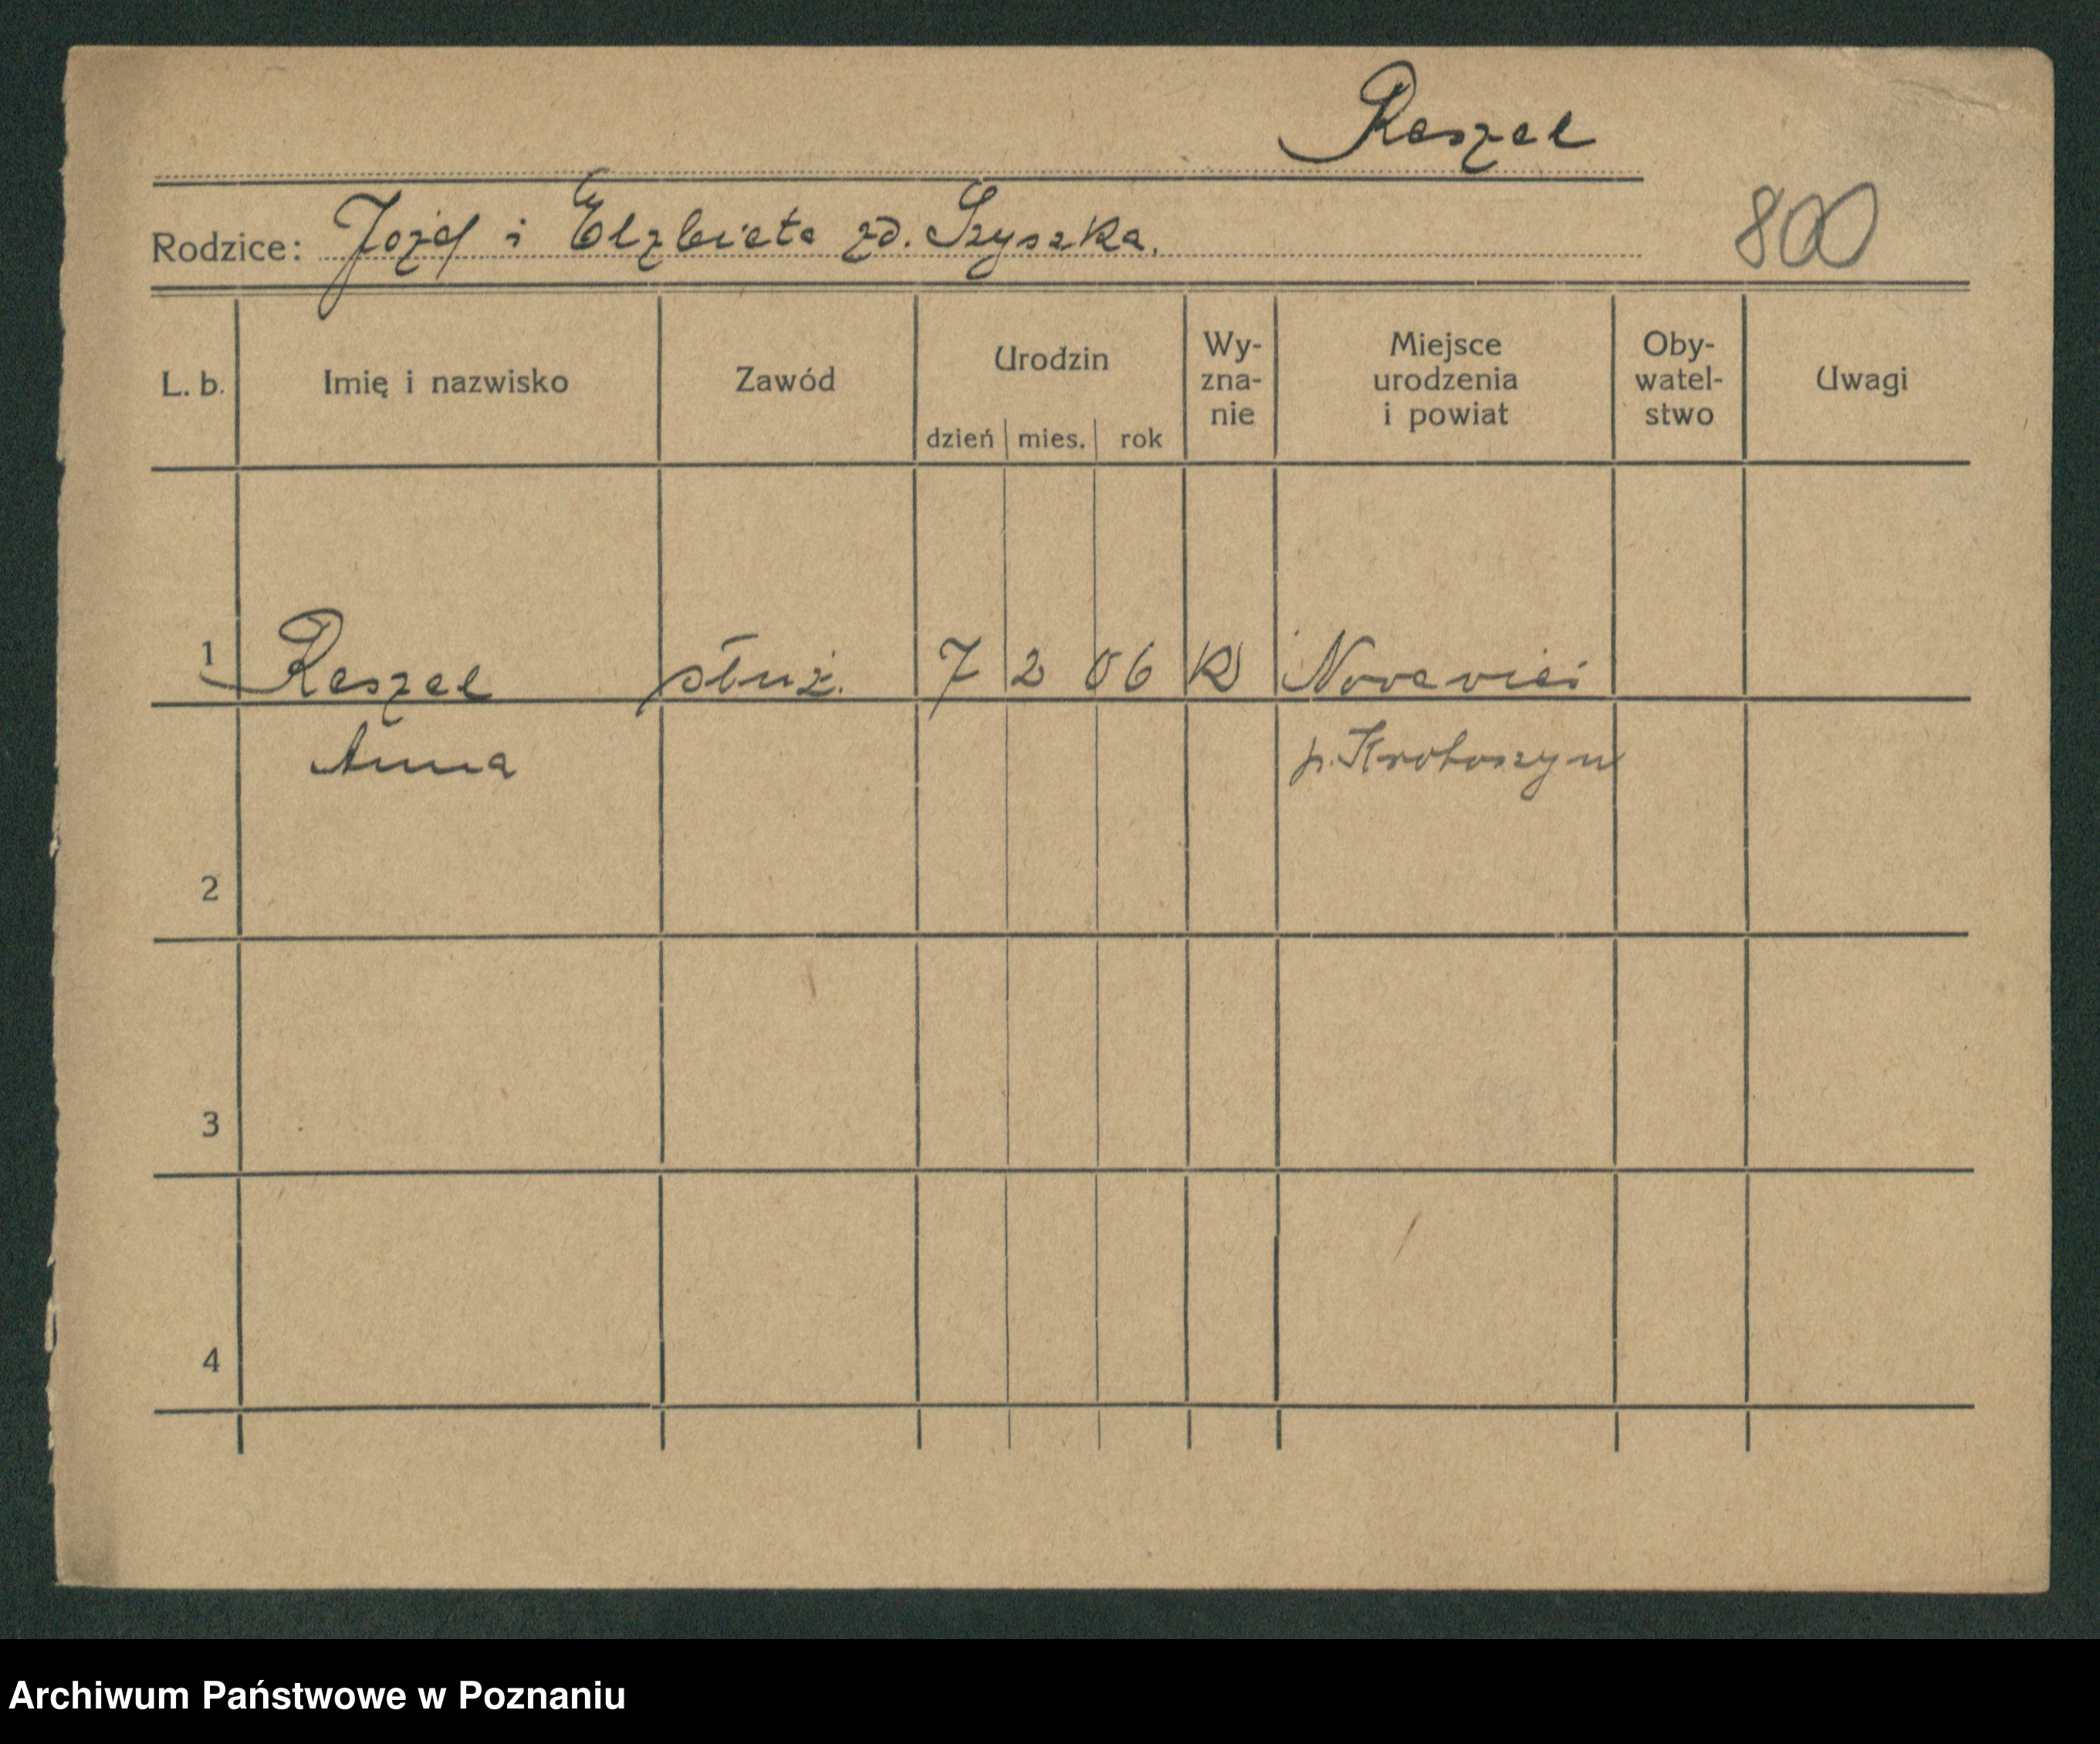 Reszel
800
Rodzice: Józef i Elżbieta zd. Szyszka.
L. b. Imię i nazwisko Zawód Urodzin dzień mies. rok Wy-zna-nie Miejsce urodzenia i powiat Oby-watel-stwo Uwagi
1 Reszel służ. 7 2 06 K Nowawieś
Anna p. Krotoszyn
2
3
4
Archiwum Państwowe w Poznaniu